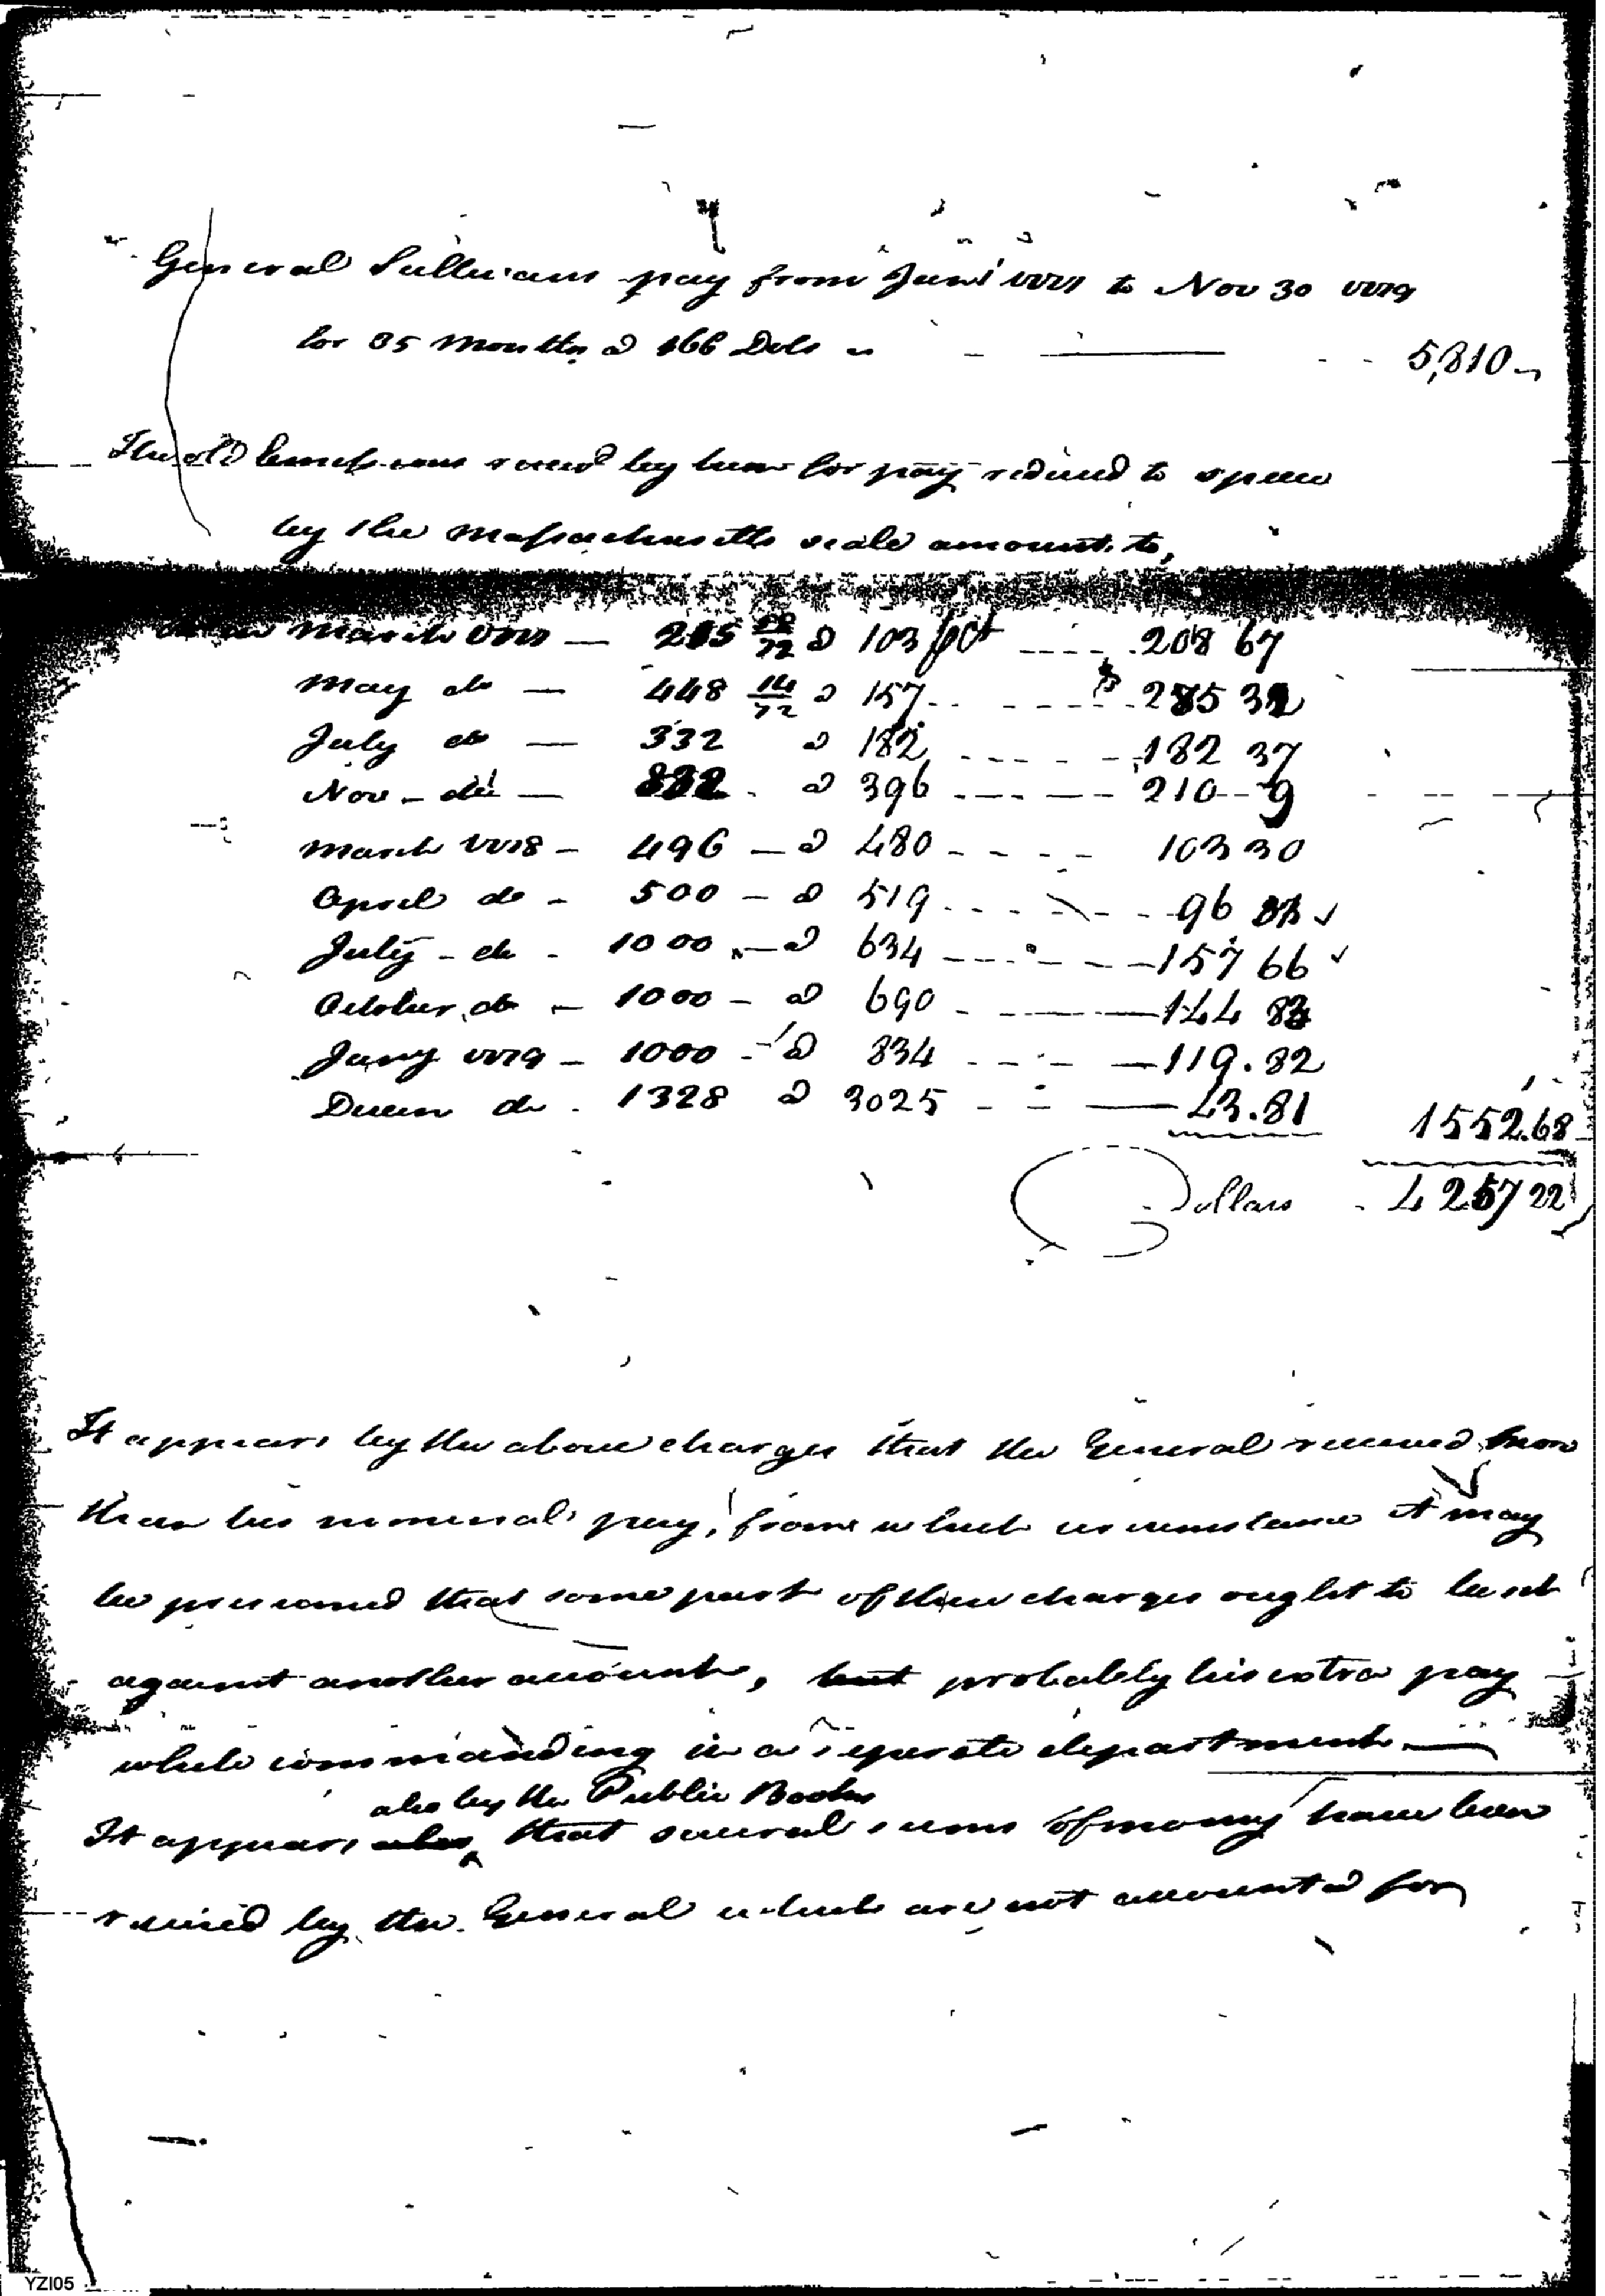 General Sullivans pay from Jan 1 1777 to Nov 30 1779
for 35 Months @ 166 Dols 5,810
The old Emissions recied by him for pay reduced to specie
by the Massachusetts scale amount to,
March 1777 — 215 @ 103 pCt 208 67
May do — 448 14/72 @ 157 285
July do — 332 @ 182 182 37
Nov - do — 832 @ 396 210 - 9
March 1778 - 496 — @ 480 103 30
April do - 500 — @ 519 96
July - do - 1000 — @ 634 157 66
October do - 1000 - @ 690 144
Jany 1779 - 1000 - @ 834 119.82
Decem do . 1328 @ 3025 43.81 1552.68
Dollars . 4257 22
It appears by the above charges that the General received more
than his nominal pay, from which circumstance it may
be presumed that some part of these charges ought to be set
against another account, but probably his extra pay
while commanding in a seperate department —
also by the Public Books
It appears also that several sums of money have been
recieved by the General which are not accounted for
YZI05